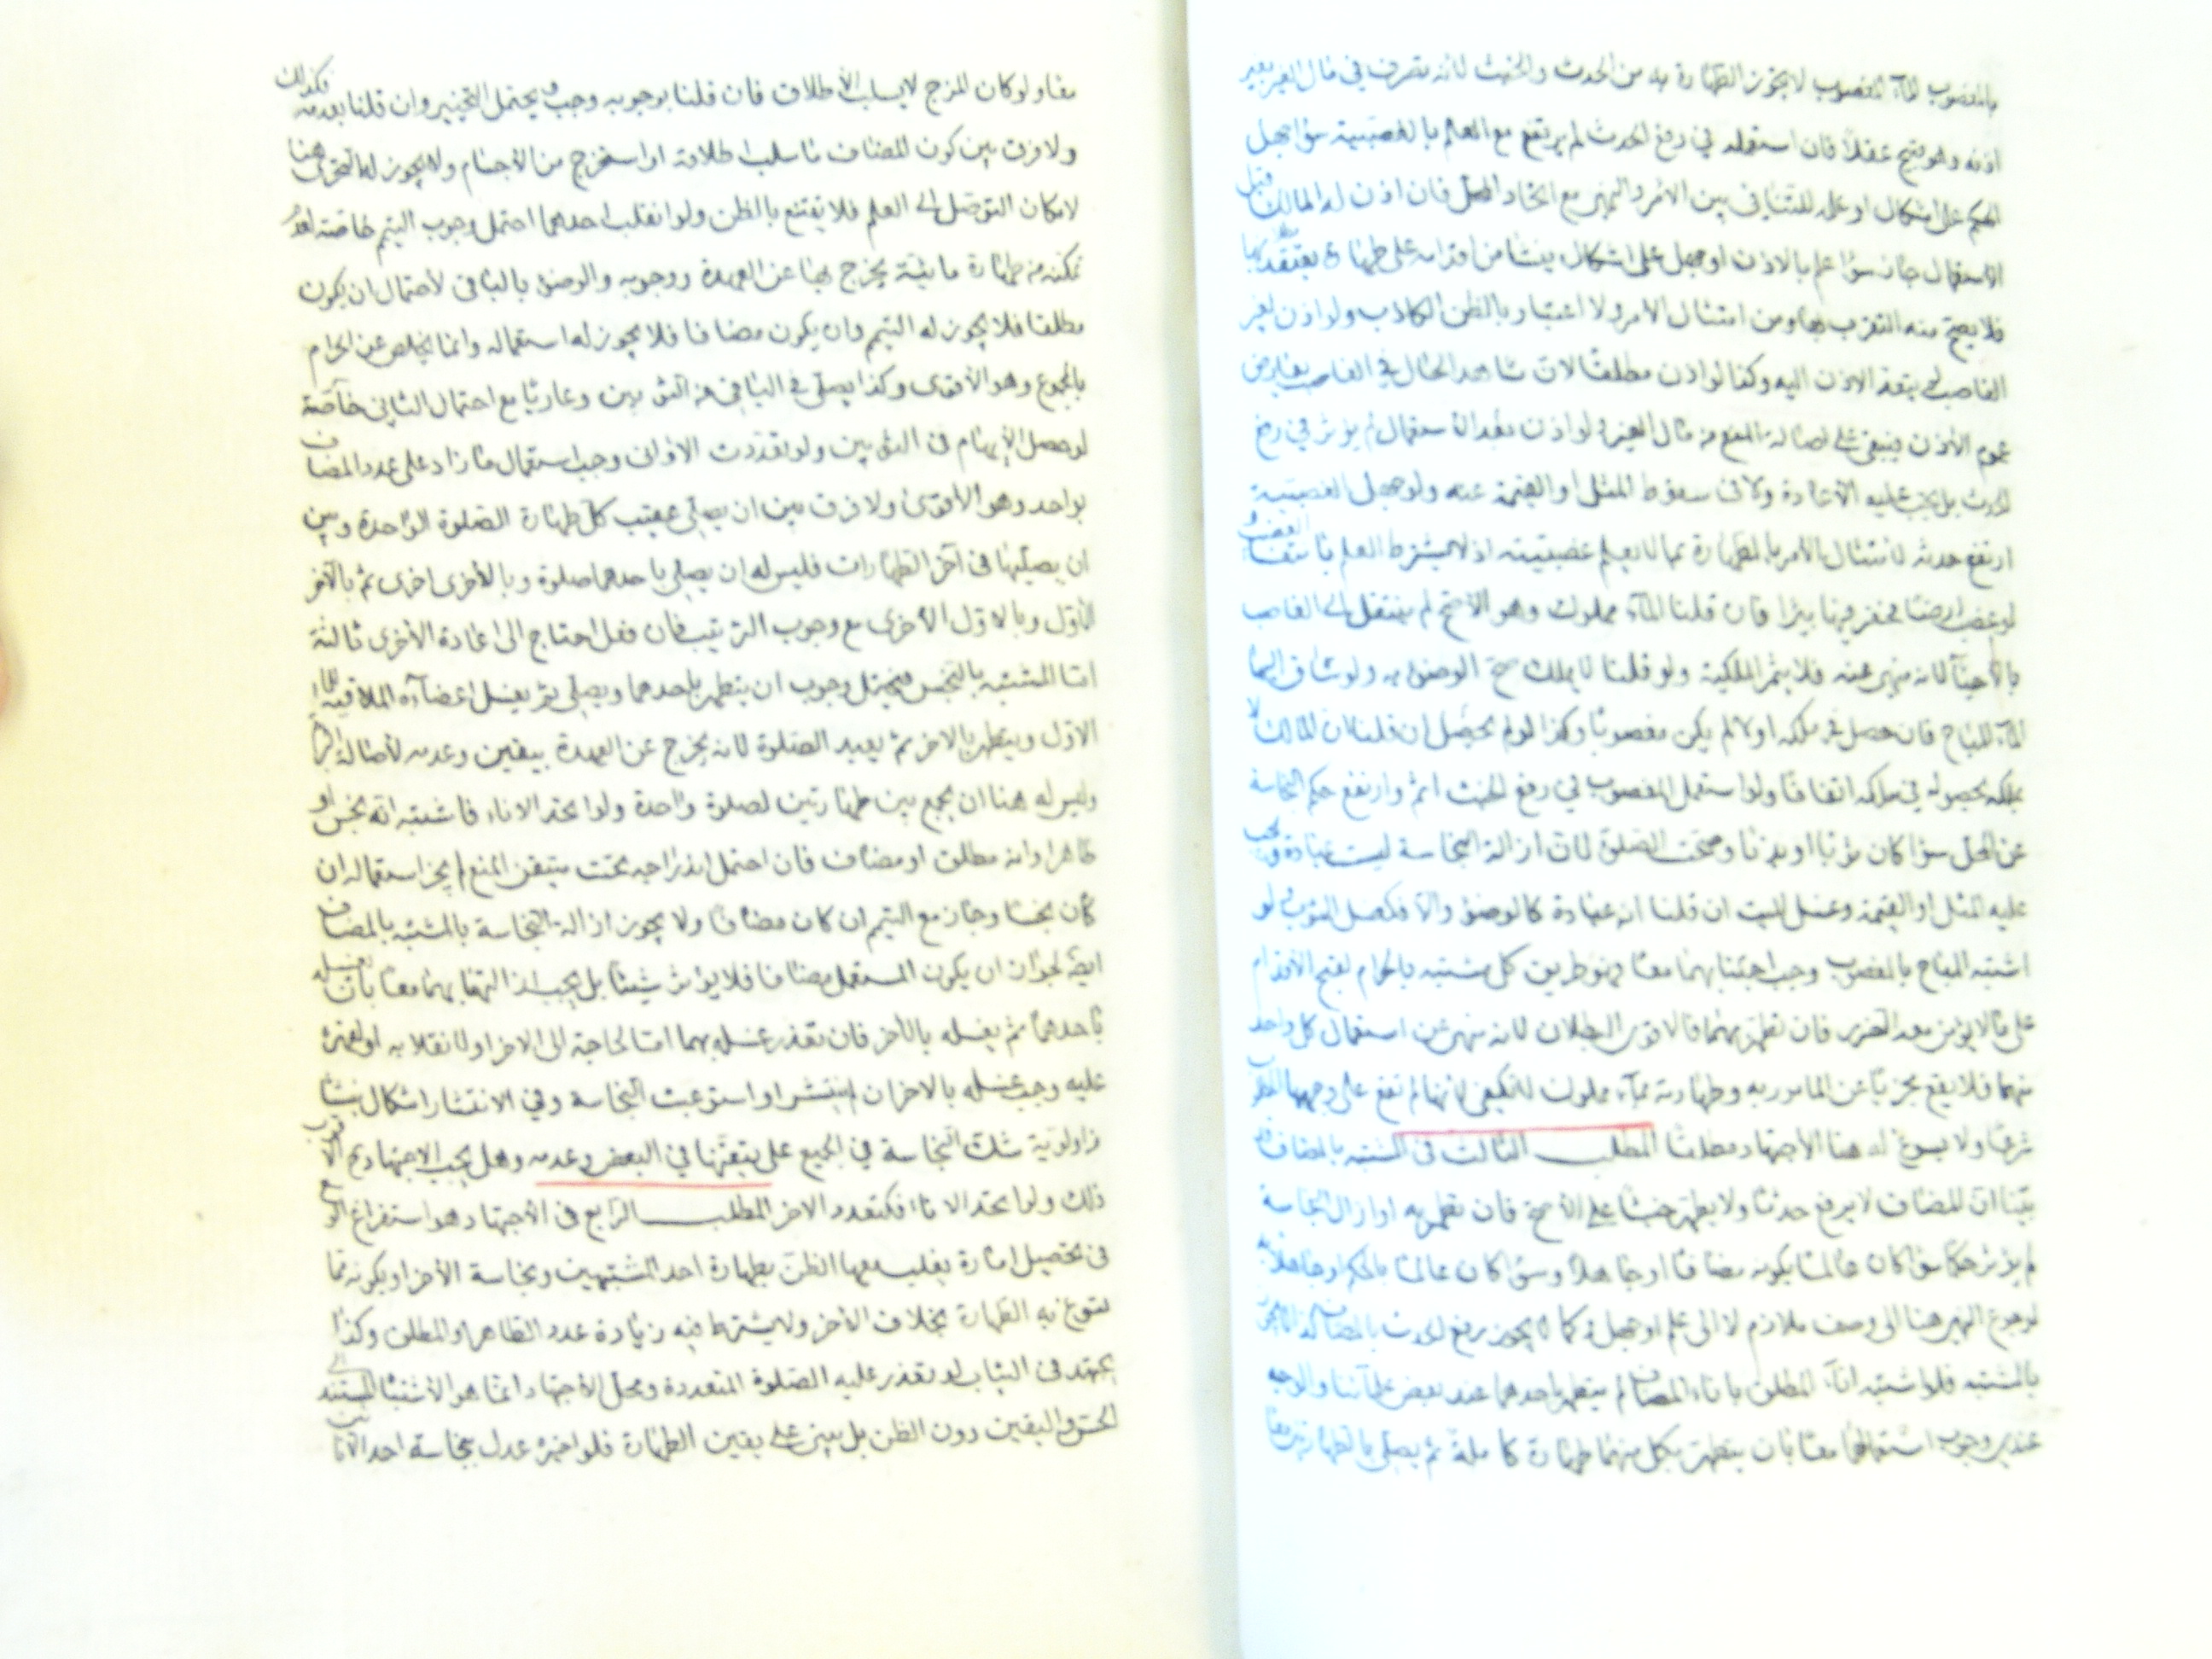 بالمغصوب الماء المغصوب لا يجوز الطهارة به من الحدث والخبث لانه تصرف في مال الغير بغير
اذنه وهو قبيح عقلا فان استعمله في رفع الحدث لم يرتفع مع العلم بالغصبية سواء جهل
الحكم على اشكال او علمه للتنافي بين الامر والنهي مع اتحاد المحل فان اذن له المالك قبل
الاستعمال جاز سواء علم بالاذن او جهل على اشكال ينشأ من اقدامه على طهارة يعتقد بطلانها
فلا يصح منه التقرب بها ومن امتثال الامر ولا اعتبار بالظن الكاذب ولو اذن لغير
الغاصب لم يتعد الاذن اليه وكذا لو اذن مطلقا لان شاهد الحال في الغاصب يعارض
عموم الاذن فيبقى على اصالة المنع من مال الغير ولو اذن بعد الاستعمال لم يؤثر في رفع
الحدث بل يجب عليه الاعادة ولا في سقوط المثل او القيمة عنه ولو جهل الغصبية
ارتفع حدثه لامتثال الامر بالطهارة بما لا يعلم غصبيته اذ لا يشترط العلم بانتفاء الغصب و
لو غصب ارضا فحفر فيها بئرا فان قلنا الماء مملوك وهو الاصح لم ينتقل الى الغاصب
بالاحياء لانه منهي عنه فلا يثمر الملكية ولو قلنا لا يملك صح الوضوء به ولو ساق اليها
الماء المباح فان حصل في ملكه اولا لم يكن مغصوبا وكذا لو لم يحصل ان قلنا ان المالك لا
يملكه بحصوله في ملكه اتفاقا ولو استعمل المغصوب في رفع الخبث اثم وارتفع حكم النجاسة
عن المحل سواء كان ثوبا او بدنا وصحت الصلوة لان ازالة النجاسة ليست عبادة ويجب
عليه المثل او القيمة وغسل الميت ان قلنا انه عبادة كالوضوء والا فكغسل الثوب ولو
اشتبه المباح بالمغصوب وجب اجتنابهما معا وهو طريق كل مشتبه بالحرام لقبح الاقدام
على ما لا يؤمن معه الضرر فان تطهر بهما فالاقوى البطلان لانه منهي عن استعمال كل واحد
منهما فلا يقع مجزيا عن المامور به وطهارته بماء مملوك لا تكفي لانها لم تقع على وجهها المطلوب
شرعا ولا يسوغ له هنا الاجتهاد مطلقا المطلب الثالث في المشتبه بالمضاف قد
بينا ان المضاف لا يرفع حدثا ولا يطهر خبثا على الاصح فان تطهر به او ازال النجاسة
لم يؤثر حكما سواء كان عالما بكونه مضافا او جاهلا وسواء كان عالما بالحكم او جاهلا به
لرجوع النهي هنا الى وصف ملازم لا الى علم او جهل وكما لا يجوز رفع الحدث بالمضاف كذا لا يجوز
بالمشتبه فلو اشتبه اناء المطلق باناء المضاف لم يتطهر باحدهما عند بعض علمائنا والوجه
عندي وجوب استعمالهما معا بان يتطهر بكل منهما طهارة كاملة ثم يصلي بالطهارتين معا
معا ولو كان المزج لا يسلب الاطلاق فان قلنا بوجوبه وجب ويحتمل التخيير وان قلنا بعدمه فكذلك
ولا فرق بين كون المضاف ما سلب اطلاقه او استخرج من الاجسام ولا يجوز له التحري هنا
لامكان التوصل الى العلم فلا يقتنع بالظن ولو انقلب احدهما احتمل وجوب التيمم خاصة لعدم
تمكنه من طهارة مائية يخرج بها عن العهدة ووجوبه والوضوء بالباقي لاحتمال ان يكون
مطلقا فلا يجوز له التيمم وان يكون مضافا فلا يجوز له استعماله وانما يخلص عن الحرام
بالمجموع وهو الاقوى وكذا يصلي في الباقي من الثوبين وعاريا مع احتمال الثاني خاصة
لو حصل الابهام في الثوبين ولو تعددت الاواني وجب استعمال ما زاد على عدد المضاف
بواحد وهو الاقوى ولا فرق بين ان يصلي عقيب كل طهارة الصلوة الواحدة وبين
ان يصليها في آخر الطهارات فليس له ان يصلي باحدهما صلوة وبالاخرى اخرى ثم بالآخر
الاول وبالاول الاخرى مع وجوب الترتيب فان فعل احتاج الى اعادة الاخرى ثالثة
اما المشتبه بالنجس فيحتمل وجوب ان يتطهر باحدهما ويصلي ثم يغسل اعضاءه الملاقية للماء
الاول ويتطهر بالاخر ثم يعيد الصلوة لانه يخرج عن العهدة بيقين وعدمه لاصالة البراءة
وليس له هنا ان يجمع بين طهارتين لصلوة واحدة ولو اتحد الاناء فاشتبه انه نجس او
طاهر او انه مطلق او مضاف فان احتمل اندراجه تحت متيقن المنع لم يجز استعماله ان
كان نجسا وجاز مع التيمم ان كان مضافا ولا يجوز ازالة النجاسة بالمشتبه بالمضاف
ايضا لجواز ان يكون المستعمل مضافا فلا يؤثر شيئا بل يجب ازالتها بهما معا بان يغسله
باحدهما ثم يغسله بالآخر فان تعذر غسله بهما اما لحاجة الى الاخر او لانقلابه او لغيره
عليه وجب غسله بالاخر ان لم ينتشر او استوعبت النجاسة وفي الانتشار اشكال ينشأ
من اولوية شك النجاسة في الجميع على تيقنها في البعض وعدمه وهل يجب الاجتهاد الاقرب
ذلك ولو اتحد الاناء فكتعدد الاخر المطلب الرابع في الاجتهاد وهو استفراغ الوسع
في تحصيل امارة يغلب معها الظن بطهارة احد المشتبهين ونجاسة الآخر او بكونه مما
تسوغ به الطهارة بخلاف الآخر ولا يشترط فيه زيادة عدد الطاهر او المطلق وكذا
يجتهد في الثياب لو تعذر عليه الصلوة المتعددة ومحل الاجتهاد انما هو الاشتباه المستند الى
الحس واليقين دون الظن بل يبني على يقين الطهارة فلو اخبره عدل بنجاسة احد الانائين